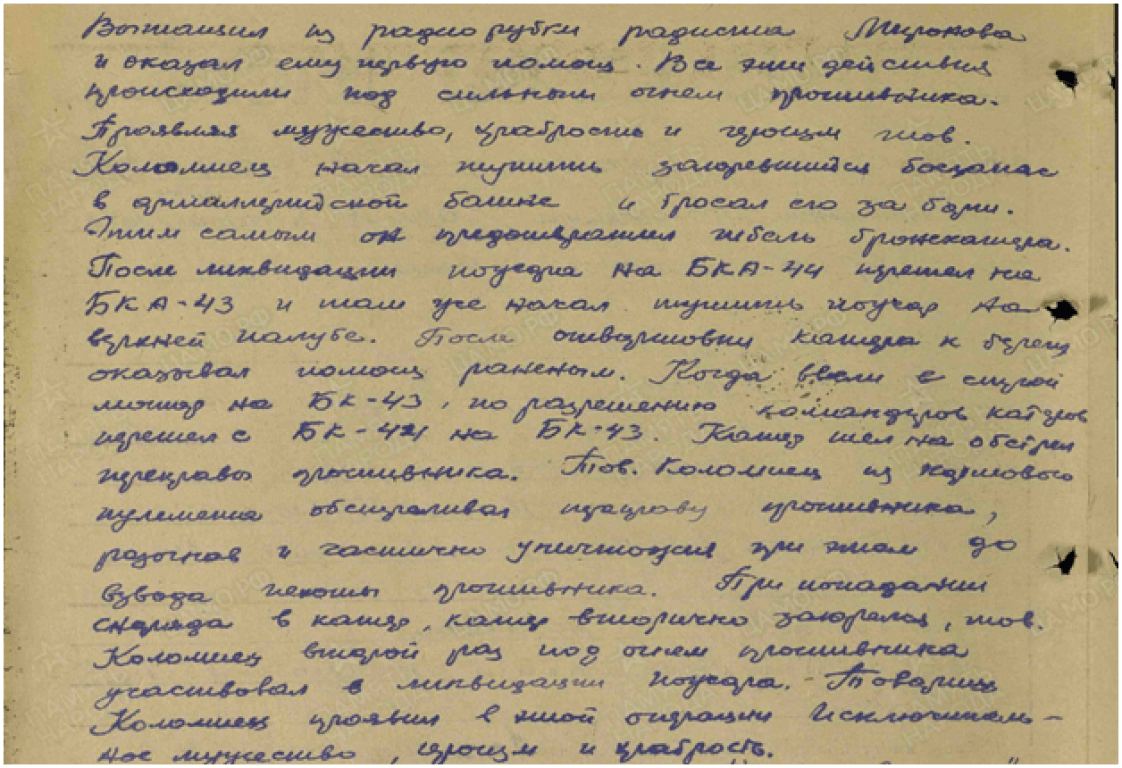 Вытащил из радиорубки радиста Миронова
и оказал ему первую помощ. Все эти действия
происходили под сильным огнем противника.
Проявляя мужество, храбрость и героизм тов.
Коломиец начал тушить загоревшийся боезапас
в артиллерийской башне и бросал его за борт.
Этим самым он предотвратил гибель бронекатера.
После ликвидации пожара на БКА-44 перешел на
БКА-43 и там уже начал тушить пожар на
верхней палубе. После швартовки катера к берегу
оказывал помощ раненым. Когда ввели в строй
мотор на БК-43, по разрешению командиров катеров
перешел с БК-44 на БК-43. Катер шел на обстрел
переправы противника. Тов. Коломиец из кормового
пулемета обстреливал переправу противника,
разогнав и частично уничтожил при этом до
взвода пехоты противника. При попадании
снаряда в катер, катер вторично загорелся, тов.
Коломиец второй раз под огнем противника
участвовал в ликвидации пожара. Товарищ
Коломиец проявил в этой операции исключитель-
ное мужество, героизм и храбрость.